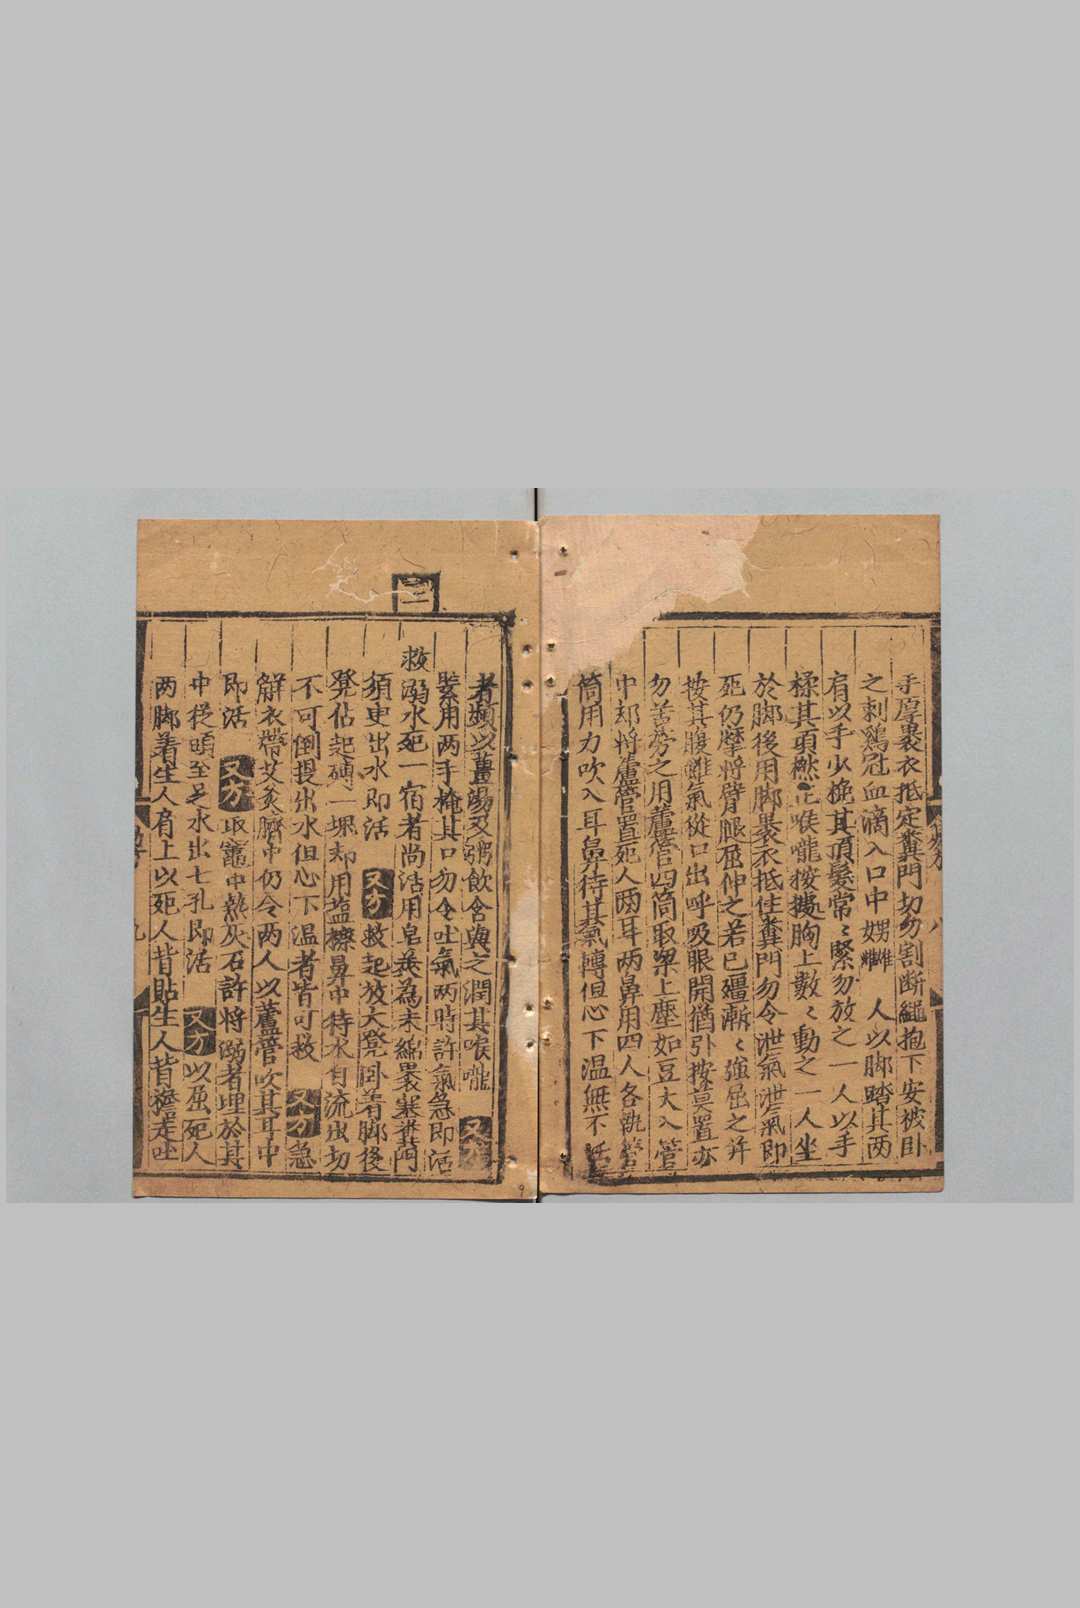 手厚裹衣抵定糞門切勿割斷繩抱下安被卧
之刺鷄冠血滴入口中男雌女雄人以脚踏其兩
肩以手少挽其頂髮常〻緊勿放之一人以手
揉其項撚正喉嚨按據胸上數〻動之一人坐
於脚後用脚裹衣抵住糞門勿令泄氣泄氣即
死仍摩将臂腿屈伸之若已殭漸〻強屈之并
按其腹雖氣從口出呼吸眼開猶引按莫置亦
勿苦勞之用蘆管四筒取梁上塵如豆大入管
中却将蘆管置死人兩耳兩鼻用四人各執管
筒用力吹入耳鼻待其氣轉但心下温無不活
者頻以薑湯及粥飲含與之潤其喉嚨 又方
緊用两手掩其口勿令吐氣两時許氣急即活
二
救溺水死一宿者尚活用皂莢為末綿裹塞糞門
須臾出水即活 又方 救起放大凳卧着脚後
凳佔起磚一塊却用盐擦鼻中待水自流出切
不可倒提出水但心下温者皆可救 又方 急
解衣帶艾灸臍中仍令两人以蘆管吹其耳中
即活 又方 取竈中熱灰石許将溺者埋於其
中從頭至足水出七孔即活 又方 以屈死人
两脚着生人肩上以死人背貼生人背擔走吐
九